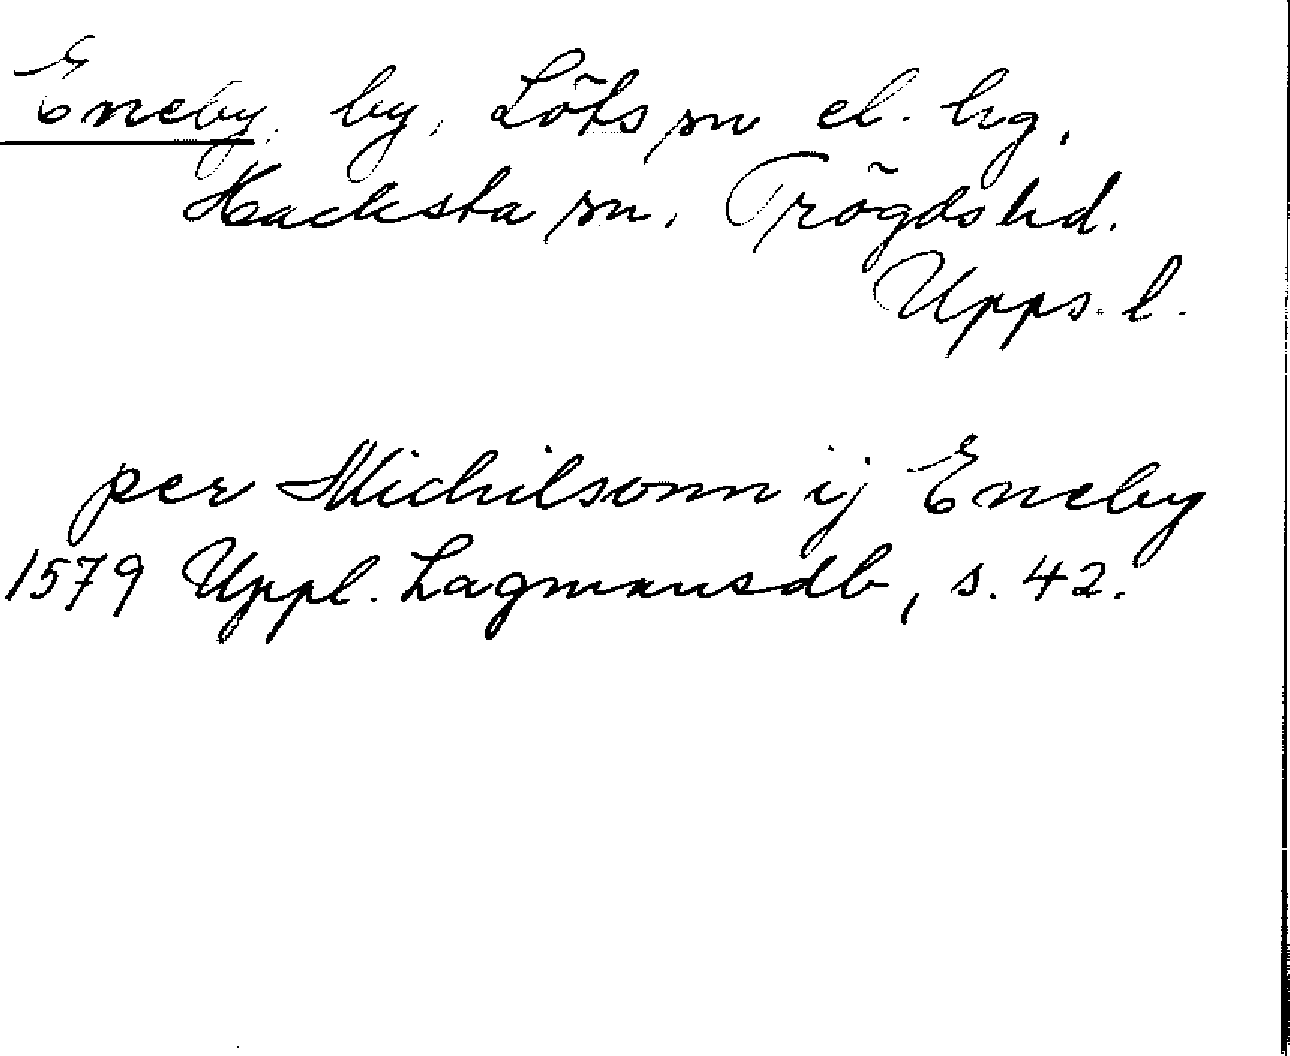 Eneby, by, Löts sn el. hg,
Hacksta sn, Trögds hd.
Upps. l.
per Michilsonn ij Eneby
1579 Uppl. Lagmansdb, s. 42.